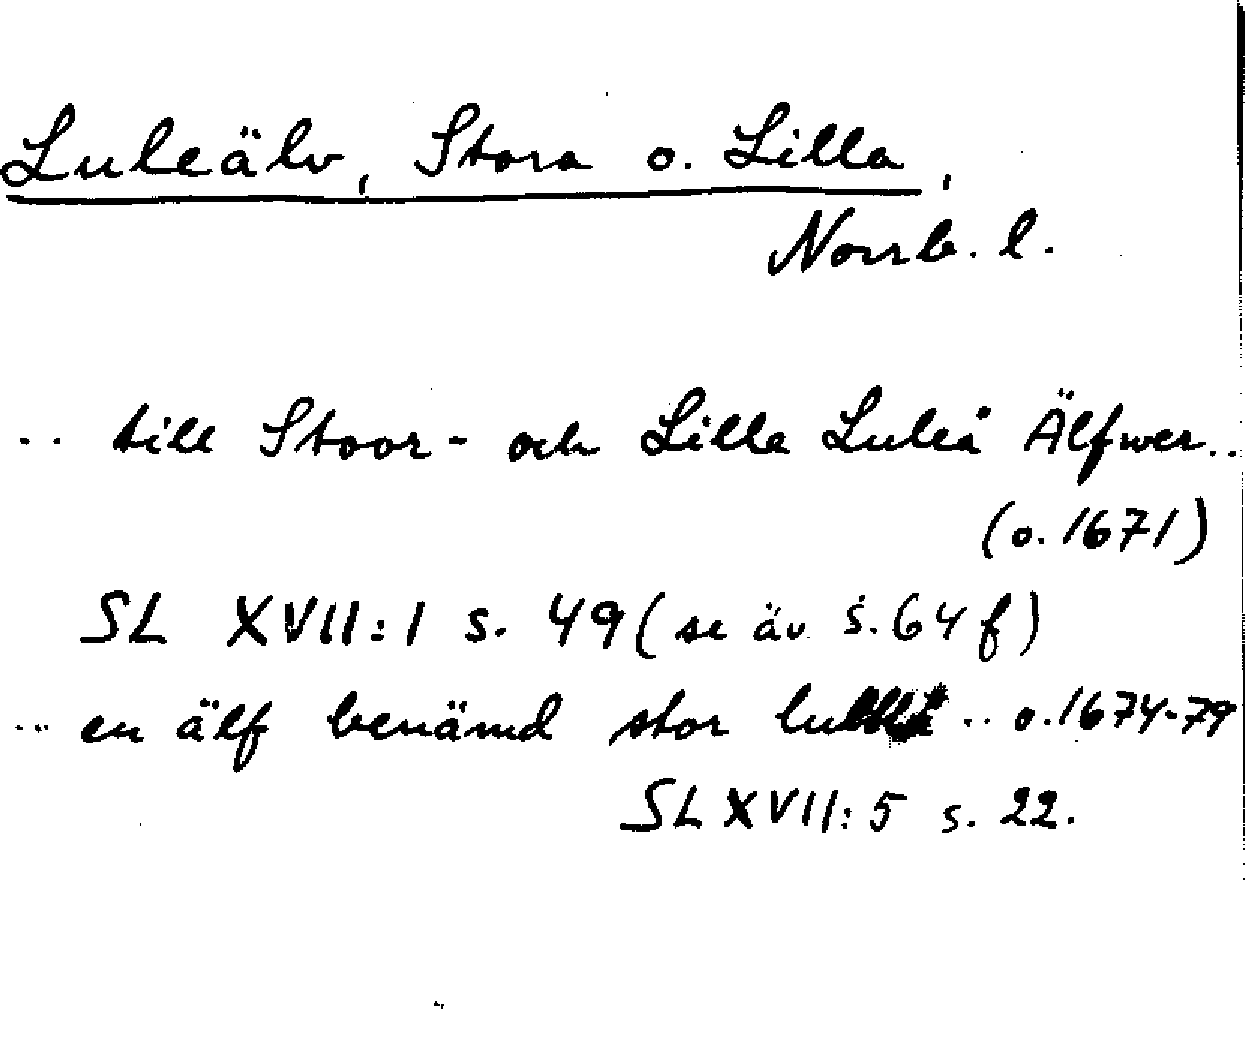 Luleälv, Stora o. Lilla,
Norrb. l.
.. till Stoor- och Lilla Luleå Älfwer..
(o. 1671)
SL XVII:1 s. 49 (se äv s. 64 f)
... en älf benämd stor .. o. 1674-79
SL XVII:5 s. 22.